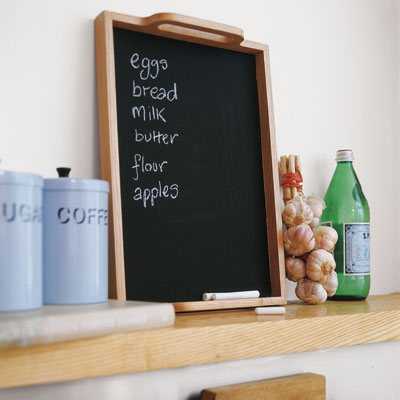 eggs
bread
milk
butter
flour
apples
UGAR
COFFE
S.P